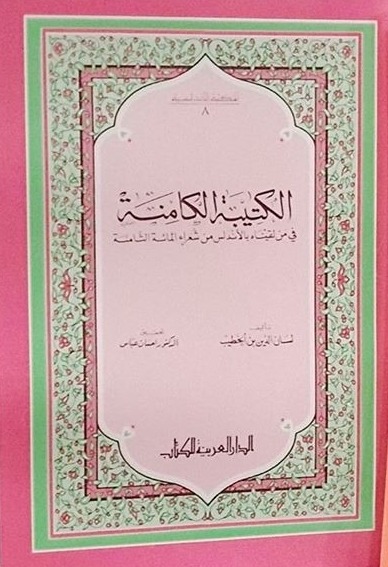 المكتبة الأندلسية
٨
الكتيبة الكامنة
في من لقيناه بالأندلس من شعراء المائة الثامنة
تأليف
لسان الدين بن الخطيب
تحقيق
الدكتور احسان عباس
الدار العربية للكتاب